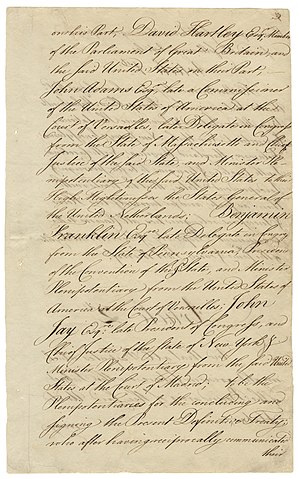 on his Part, David Hartley Esqr. Member
of the Parliament of Great Britain; and
the said United States on their Part,
John Adams Esqr. late a Commissioner
of the United States of America at the
Court of Versailles, late Delegate in Congress
from the State of Massachusetts and Chief
Justice of the said State, and Minister Ple
nipotentiary of the said United States to their
High Mightinesses the States General of
the United Netherlands; Benjamin
Franklin Esqr. late Delegate in Congress
from the State of Pennsylvania, President
of the Convention of the sd. State, and Minister
Plenipotentiary from the United States of
America at the Court of Versailles; John
Jay Esqr. late President of Congress, and
Chief Justice of the State of New York &
Minister Plenipotentiary from the said United
States at the Court of Madrid; to be the
Plenipotentiaries for the concluding and
signing the Present Definitive Treaty;
who after having reciprocally communicated
their